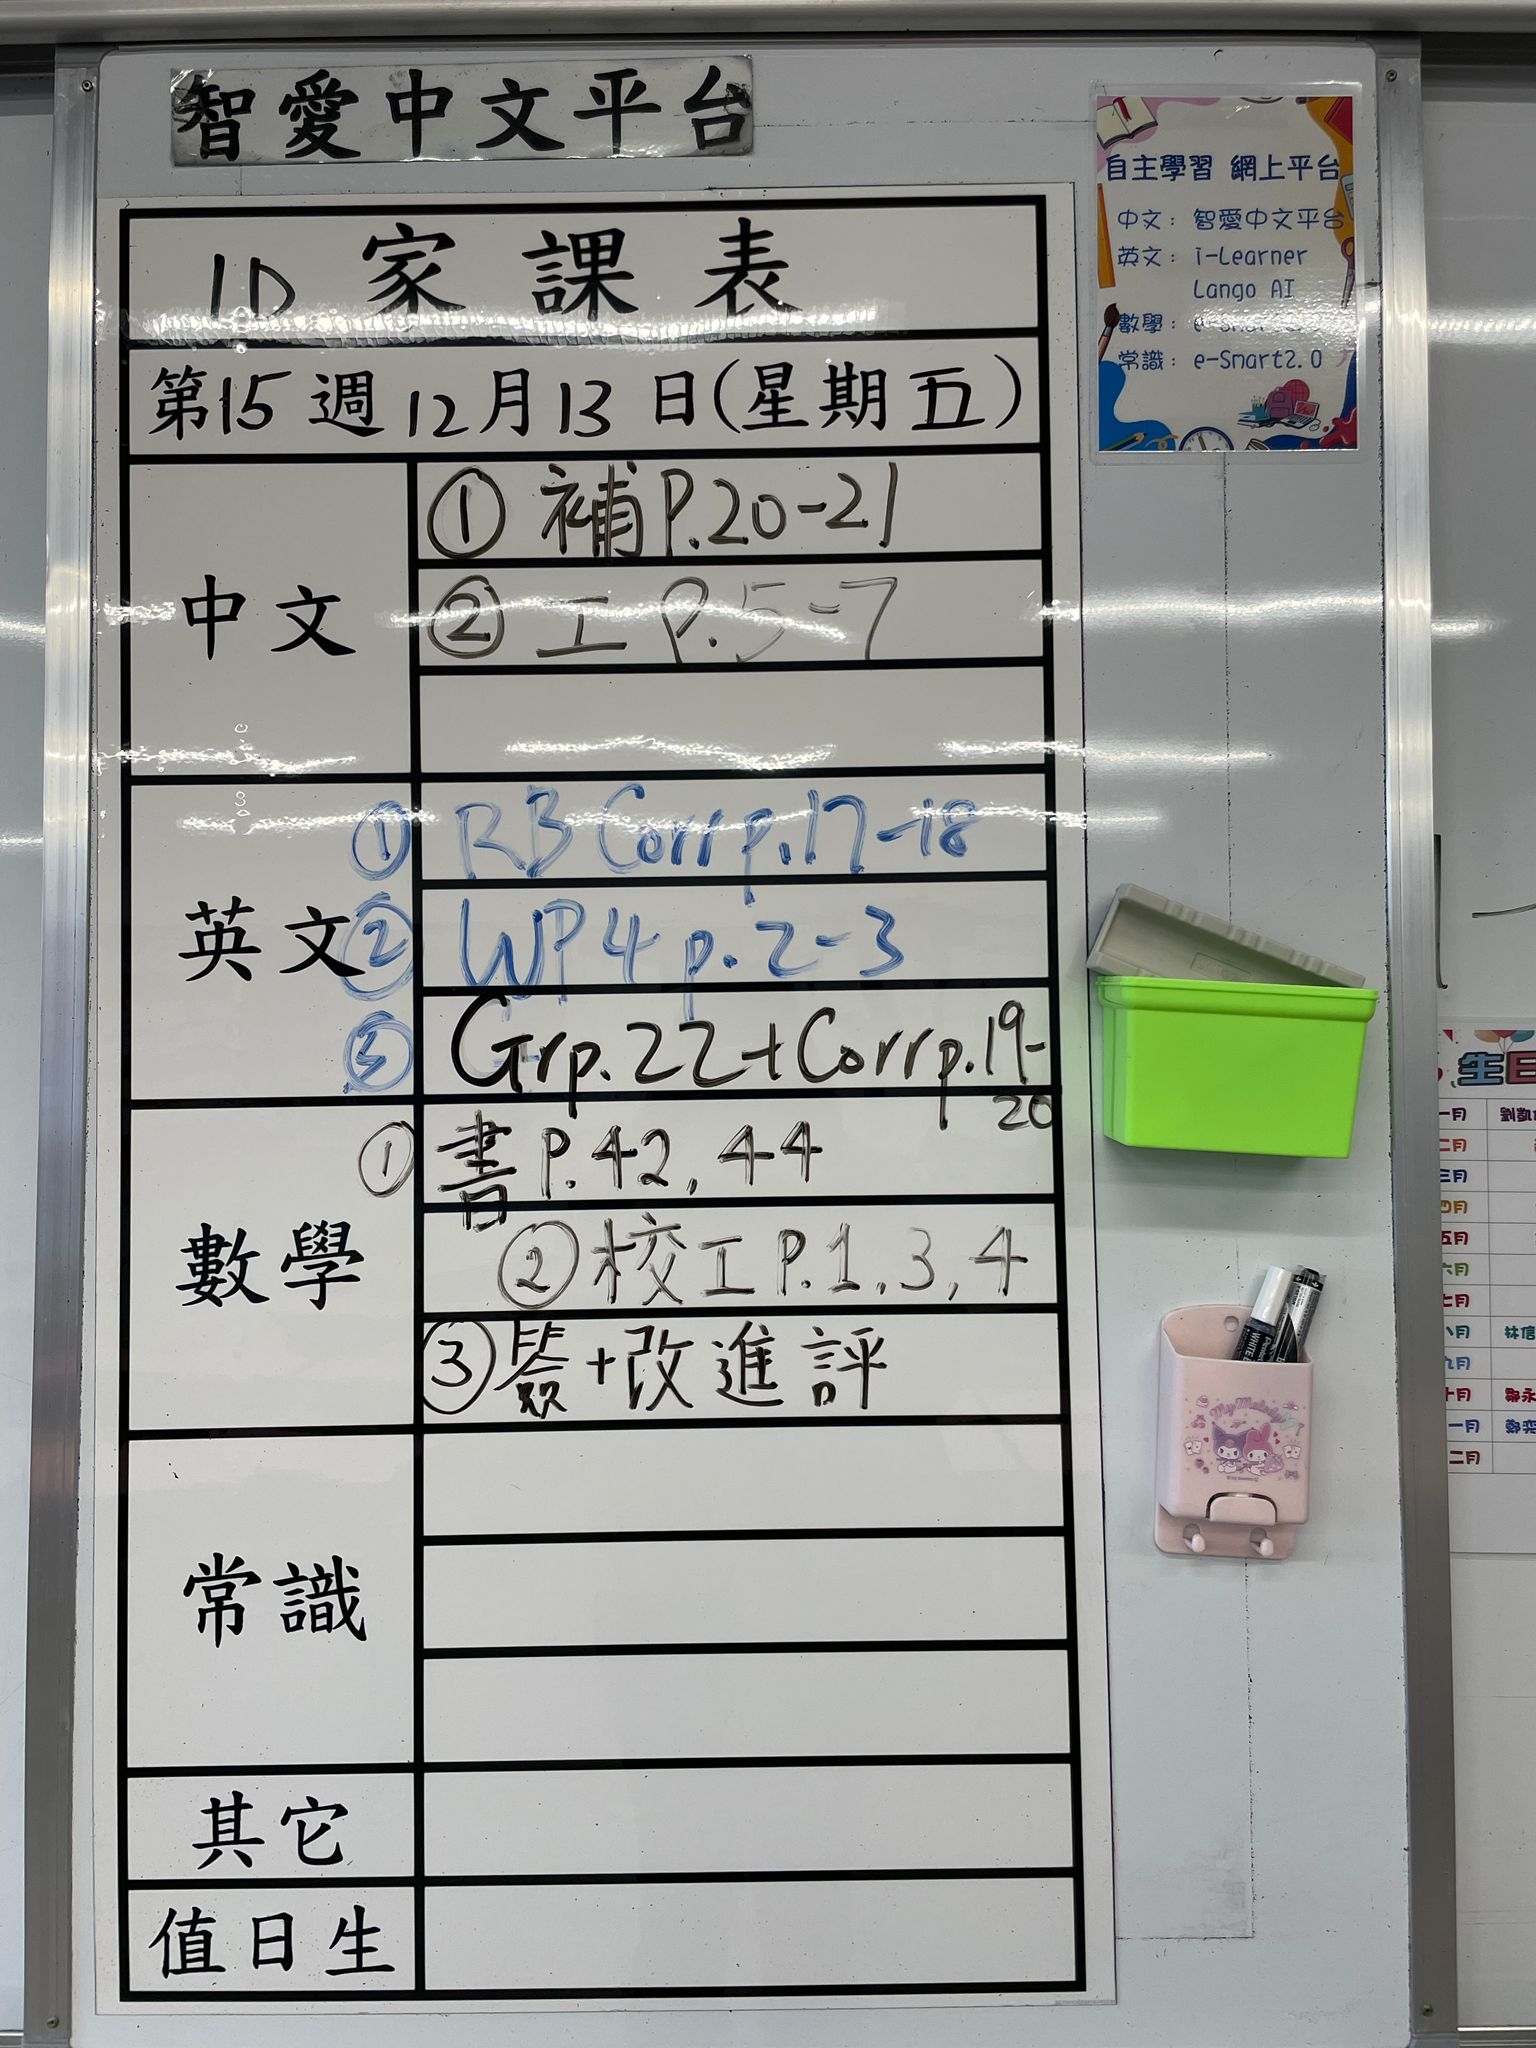 智愛中文平台
1D 家課表
第15週12月13日(星期五)
中文
① 補P.20-21
② 工 P.5-7
英文
① RB Corr p.17-18
② WP4 p.2-3
③ Gr p.22 + Corr p.19-20
數學
① 書 P.42, 44
② 校工 P.1, 3, 4
③ 簽+改進評
常識
其它
值日生
自主學習 網上平台
中文：智愛中文平台
英文：i-Learner
Lango AI
數學：
常識：e-Smart2.0
My Melody
WHITE
生日
一月
二月
三月
四月
五月
六月
七月
八月 林信
九月
十月 鄒永
一月
二月